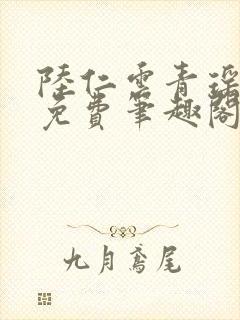 陸仁雲青瑤
免費筆趣閣
九月鳶尾